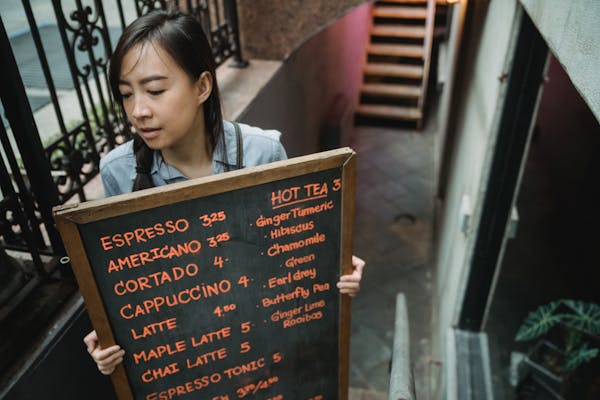 ESPRESSO 3,25
AMERICANO 3,25
CORTADO 4
CAPPUCCINO 4
LATTE 4.50
MAPLE LATTE 5
CHAI LATTE 5
ESPRESSO TONIC 5
HOT TEA 3
· Ginger Turmeric
· Hibiscus
· Chamomile
· Green
· Earl Grey
· Butterfly Pea
· Ginger Lime
Rooibos